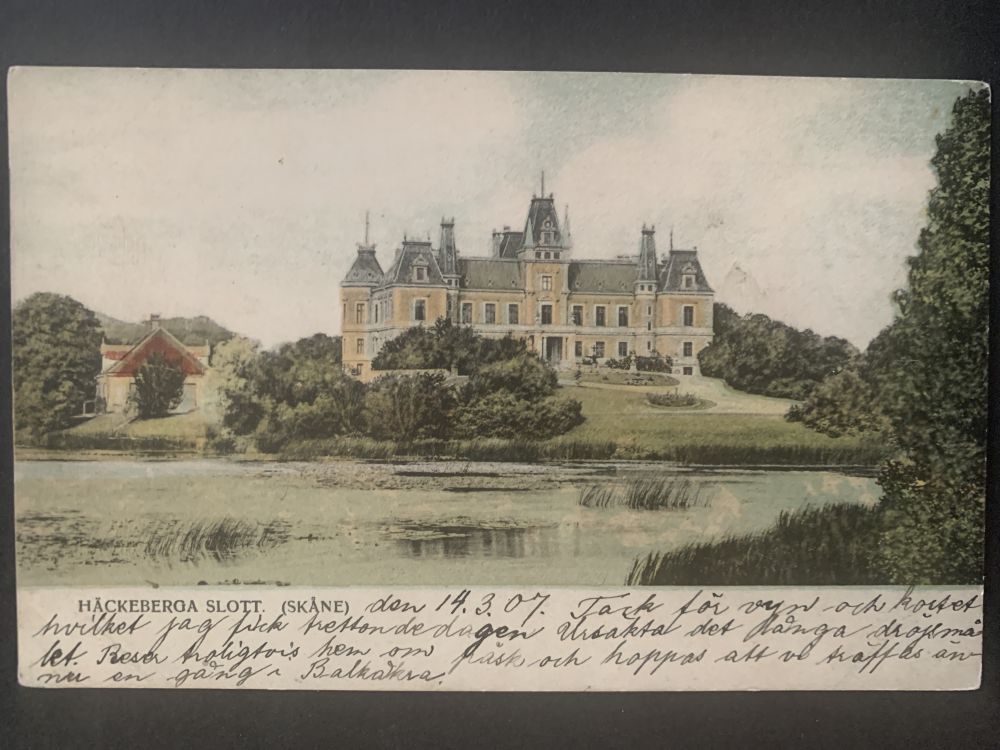 HÄCKEBERGA SLOTT. (SKÅNE) den 14.3.07. Tack för vyn och kortet
hvilket jag fick trettondedagen Ursäkta det långa dröjsmå
let. Reser troligtvis hem om påsk och hoppas att vi träffas än
nu en gång i Balkåkra.